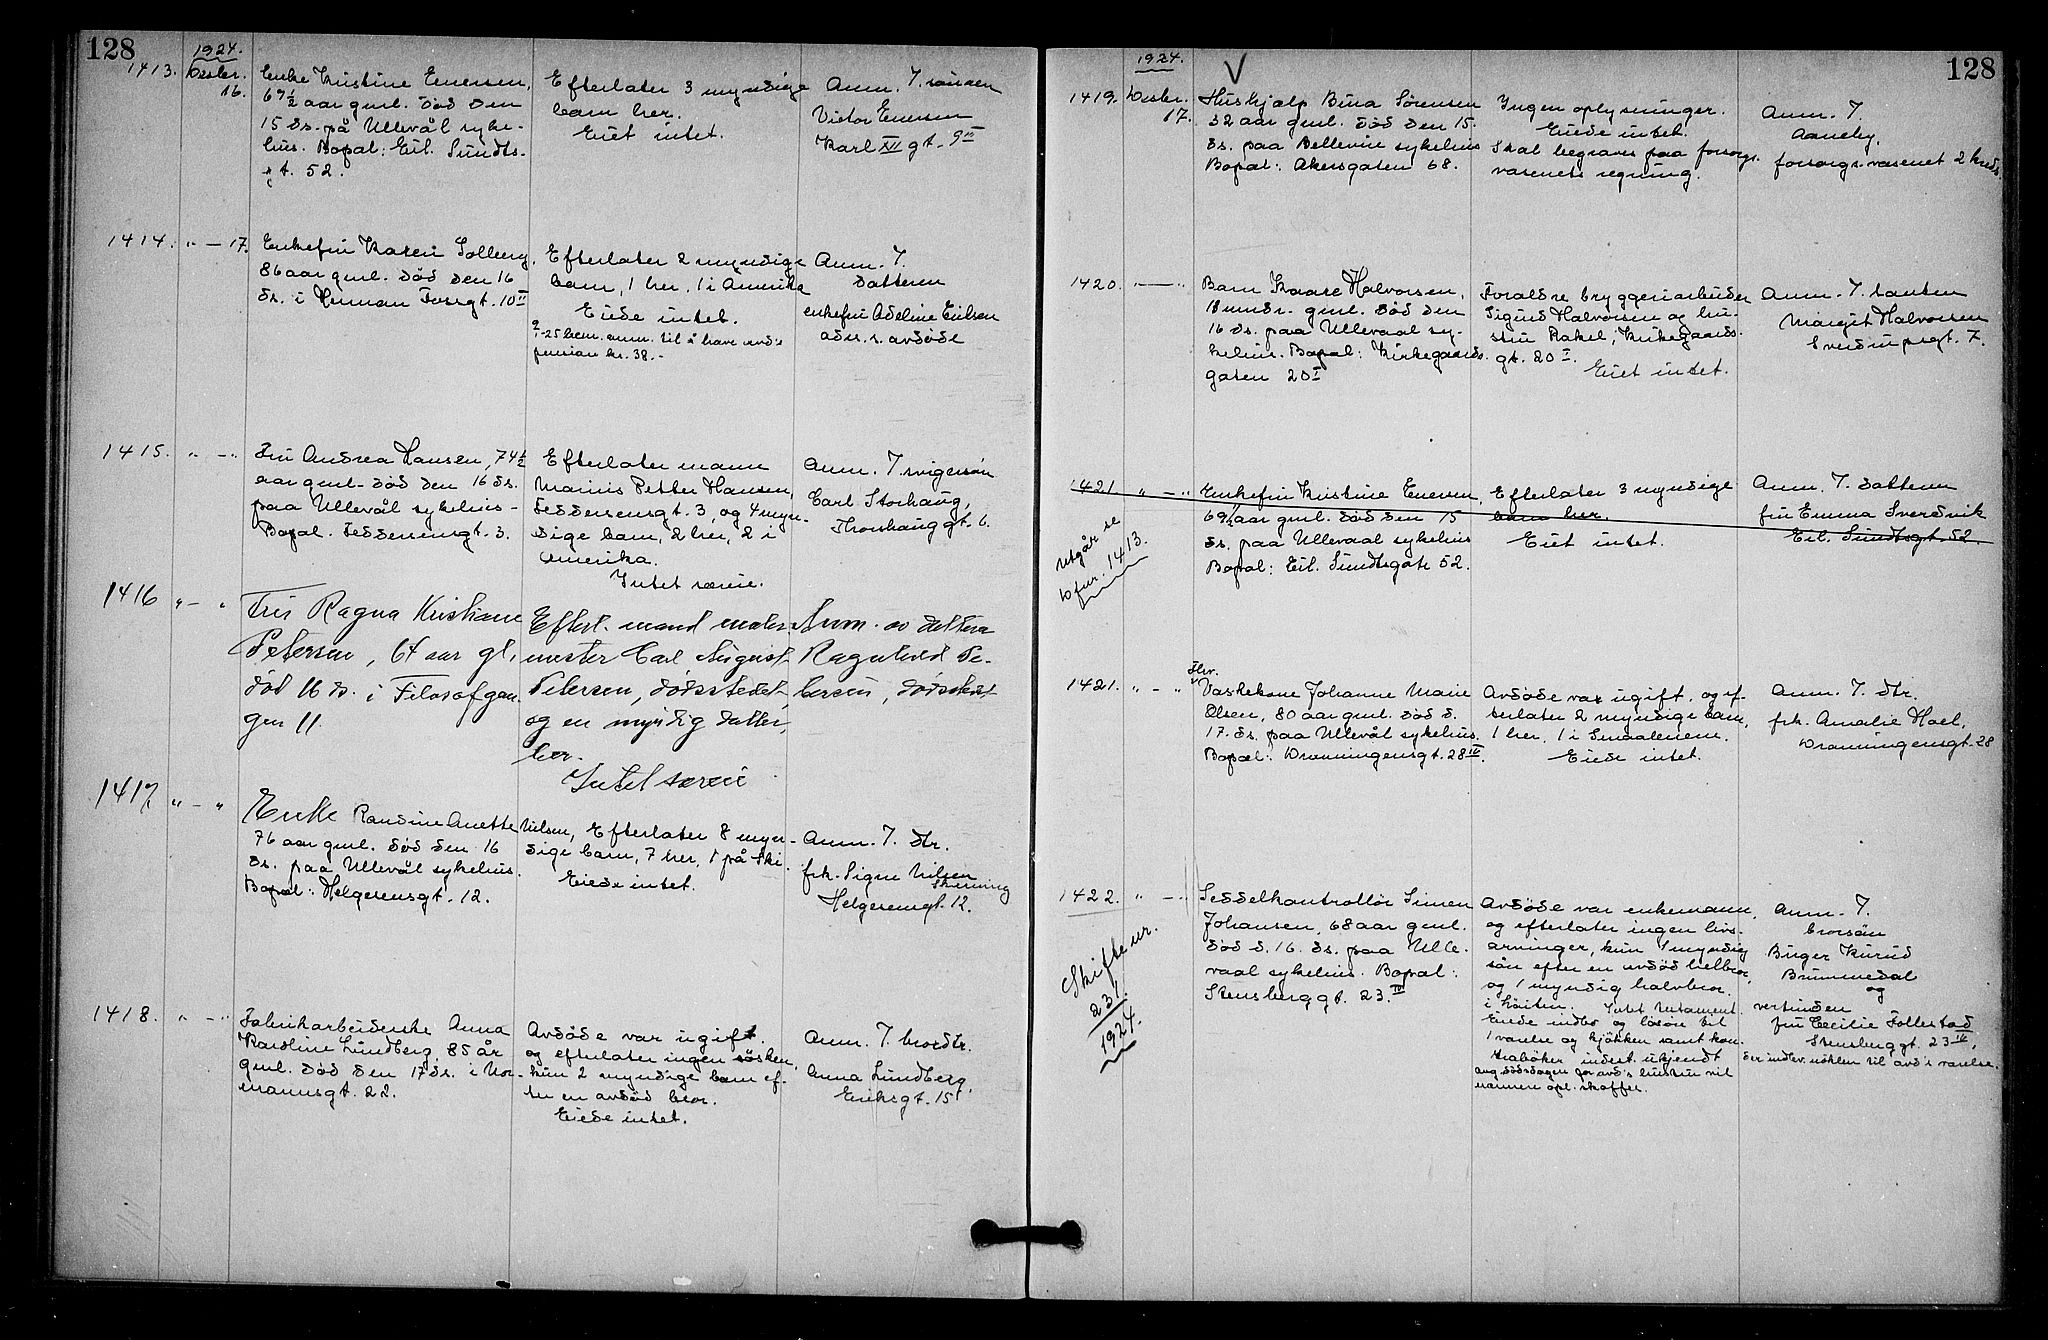 128
1924.
1413. Desbr. 16.
Enke Kristine Enersen,
69½ aar gml. død den
15 ds. på Ullevål syke-
hus. Bopæl: Eil. Sundts-
gt. 52.
Efterlater 3 myndige
barn her.
Eiet intet.
Anm. T. sønnen
Victor Enersen
Karl XII gt. 9 III
1414. " — 17.
Enkefru Karen Solberg,
86 aar gml. død den 16
ds. i Herman Fossgt. 10 II
Efterlater 2 myndige
barn, 1 her, 1 i Amerika
Eiede intet.
pension kr. 38.-
Anm. T.
datteren
enkefru Adeline Eilsen
adr. s. avdøde
1415. " — "
Fru Andrea Hansen, 74½
aar gml. død den 16 ds.
paa Ullevål sykehus -
Bopæl. Feddersensgt. 3.
Efterlater mann
Marius Petter Hansen,
Feddersensgt. 3, og 4 myn-
dige barn, 2 her, 2 i
Amerika.
Intet særeie.
Anm. T. svigersøn
Carl Storhaug,
Thorshauggt. 6.
1416 " — "
Fru Ragna Kristiane
Petersen, 64 aar gl.,
død 16 ds. i Filosofgan-
gen 11.
Efterl. mand maler-
mester Carl August
Petersen, dødsstedet,
og en myndig datter,
her.
Intet særeie
Anm. av datteren
Ragnhild Pe-
tersen, dødsstedet
1417 " — "
Enke Randine Anette Nilsen,
76 aar gml. død den 16
ds. paa Ullevål sykehus.
Bopæl: Helgesensgt. 12.
Efterlater 8 myn-
dige barn, 7 her, 1 på Ski.
Eiede intet.
Anm. T. dtr.
frk. Signe Nilsen
Helgesensgt. 12.
1418. " — "
Fabrikarbeiderske Anna
Karoline Lundberg, 85 år
gml. død den 17 ds. i Nor-
mannsgt. 22.
Avdøde var ugift.
og efterlater ingen søsken,
kun 2 myndige barn ef-
ter en avdød bror.
Eiede intet.
Anm. T. brordtr.
Anna Lundberg,
Eriksgt. 15 I
128
1924.
V
1419. Desbr. 17.
Hushjælp Bina Sørensen
32 aar gml. død den 15.
ds. paa Bellevue sykehus
Bopæl: Akersgaten 68.
Ingen oplysninger.
Eiede intet.
Skal begraves paa forsorgs-
væsenets regning.
Anm. T.
Aaneby,
forsorgsvæsenet 2 kreds.
1420. " — "
Barn Kaare Halvorsen,
18 mndr. gml. død den
16 ds. paa Ullevaal sy-
kehus. Bopæl: Kirkegaards-
gaten 20 I
Forældre bryggeriarbeider
Sigurd Halvorsen og hu-
stru Rakel, Kirkegaards-
gt. 20 I.
Eiet intet.
Anm. T. tanten
Margit Halvorsen
Sverdrupsgt. 7.
1421. " — "
utgår se
1413.
Enkefru Kristine Enersen,
69½ aar gml. død den 15
ds. paa Ullevaal sykehus
Bopæl: Eil. Sundtsgate 52.
Efterlater 3 myndige
barn her.
Eiet intet.
Anm. T. datteren
fru Emma Sverdvik
Eil. Sundtsgt. 52.
1421. " — "
Fhv.
Vaskekone Johanne Marie
Olsen, 80 aar gml. død d.
17. ds. paa Ullevål sykehus.
Bopæl: Dronningensgt. 28 IV.
Avdøde var ugift, og ef-
terlater 2 myndige barn,
1 her, 1 i Smaalenene.
Eiede intet.
Anm. T. dtr.
frk. Amalie Hoel,
Dronningensgt. 28
1422. " — "
Skifte nr.
231
1924.
Seddelkontrollør Simen
Johansen, 68 aar gml.
død d. 16. ds. paa Ulle-
vaal sykehus. Bopæl:
Stensberggt. 23 IV
Avdøde var enkemann,
og efterlater ingen livs-
arvinger, kun 1 myndig
søn efter en avdød helbror,
og 1 myndig halvbror
i Løiten. Intet testament.
Eiede indbo og løsøre til
1 værelse og kjøkken samt kon-
trabøker indest. ukjendt
ang. dødsdagen for avd's hustru vil
nærmere opl. skaffes.
Anm. T.
brorsøn
Birger Kurud
Brummedal
og
vertinden
fru Cecilie Follestad
Stensberggt. 23 IV,
der indlev. nøklen til avd's værelse.